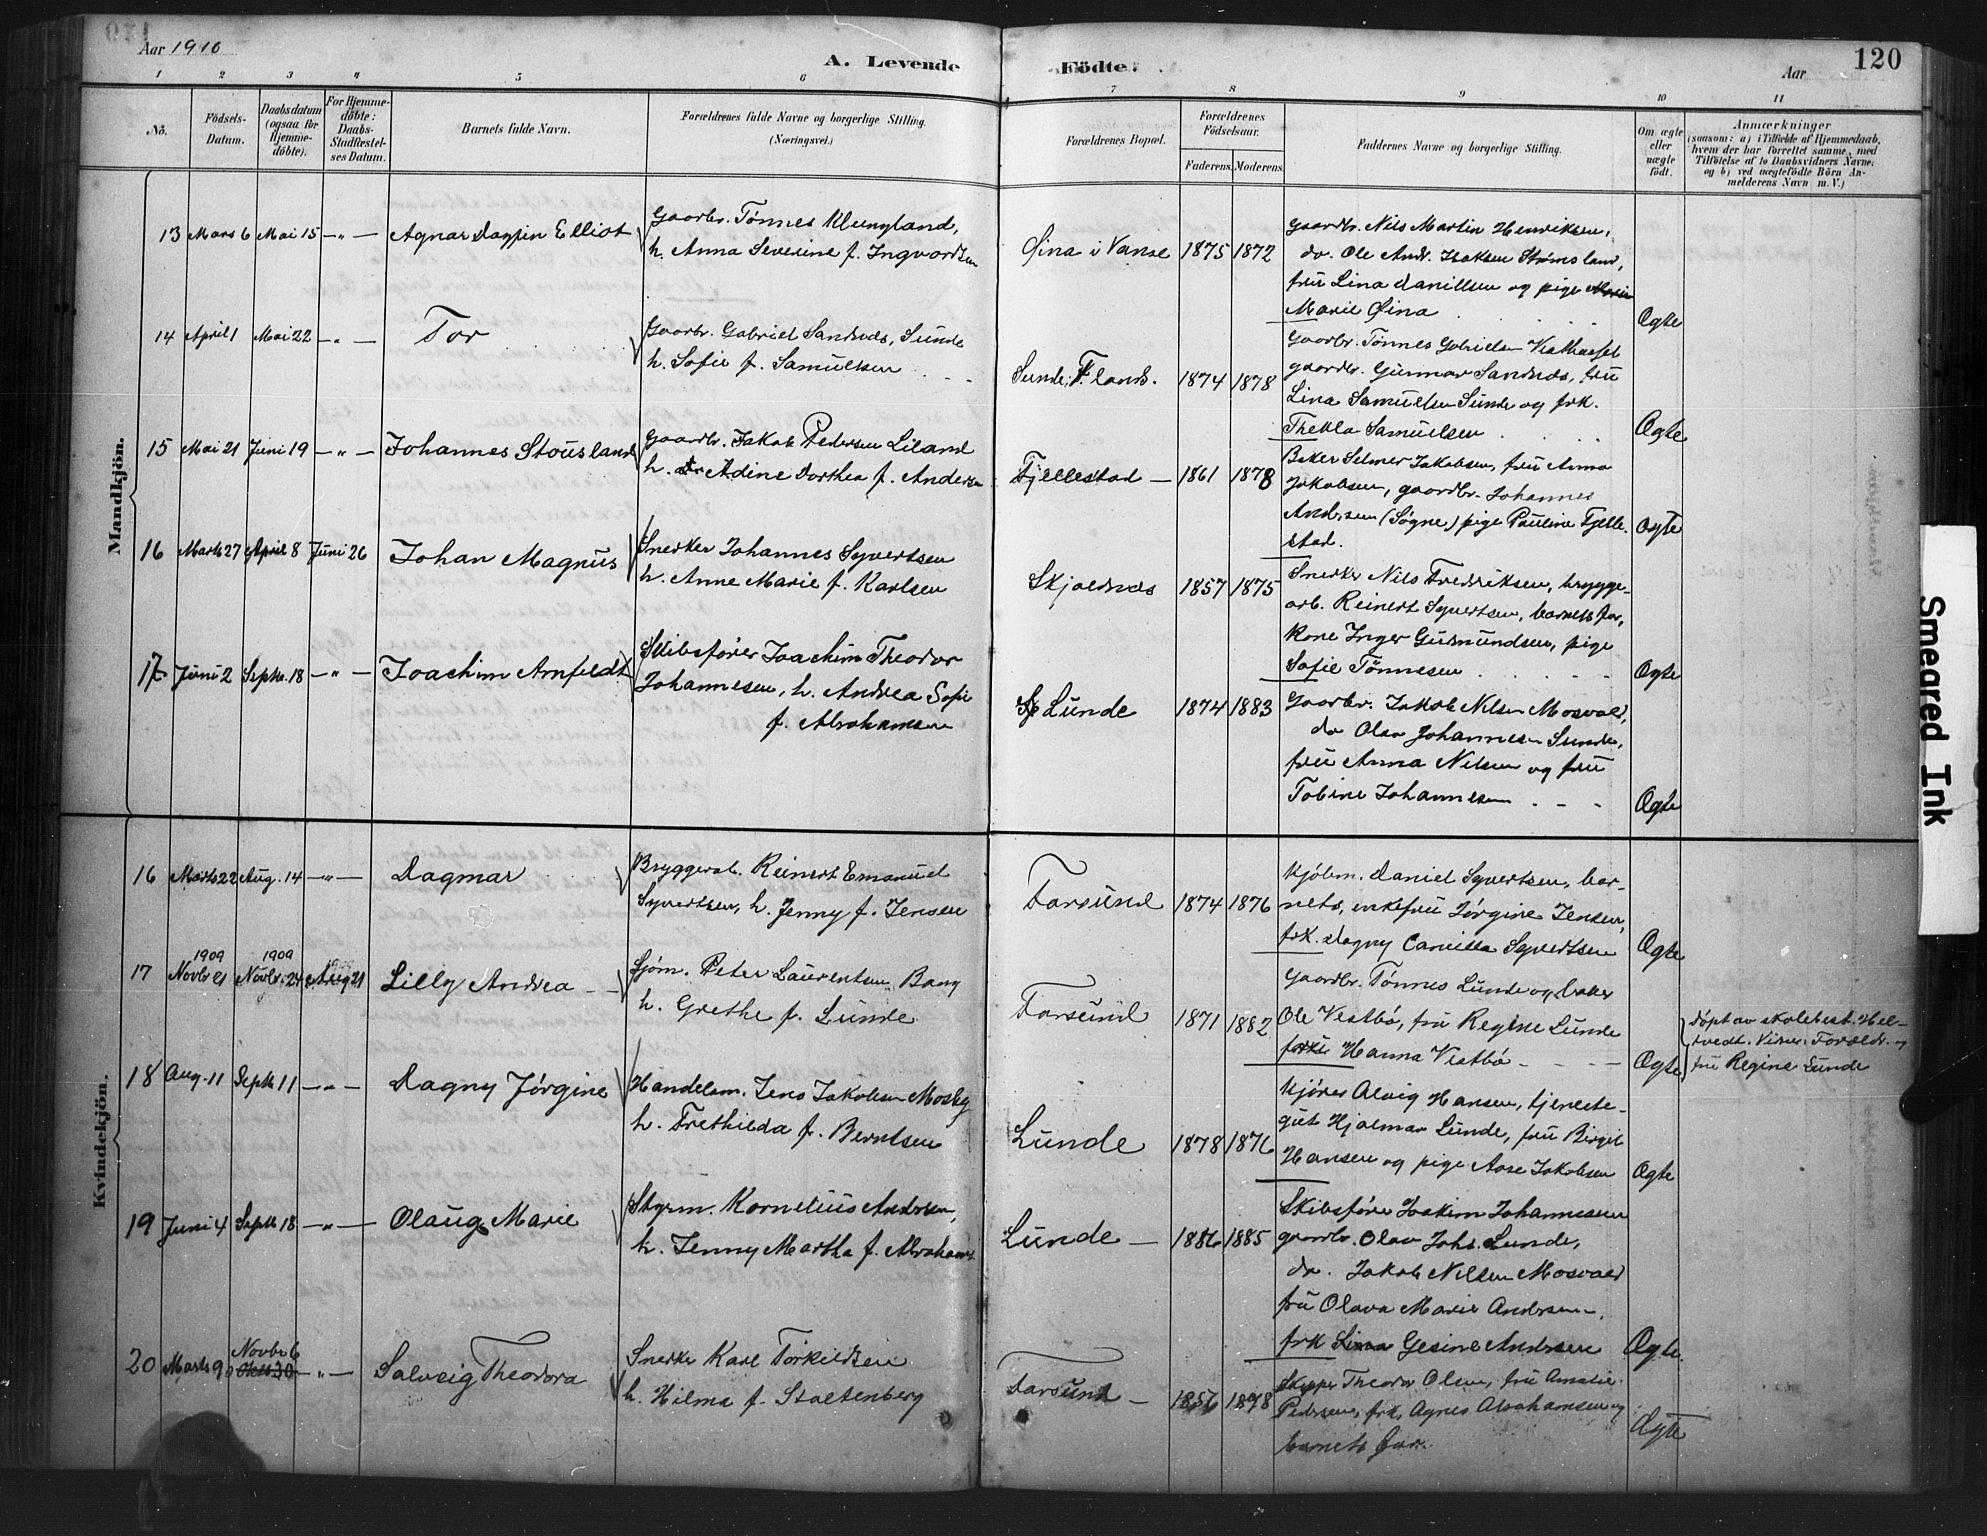 Aar 1910
A. Levende Födte.
Aar
120
1 2 3 4 5 6 7 8 9 10 11
No.
Födsels-
Datum.
Daabsdatum
(ogsaa for
Hjemme-
döbte).
For Hjemme-
döbte:
Daabs-
Stadfæstel-
ses Datum.
Barnets fulde Navn.
Forældrenes fulde Navne og borgerlige Stilling.
(Næringsvei.)
Forældrenes Bopæl.
Forældrenes
Födselsaar.
Faderens. Moderens.
Faddernes Navne og borgerlige Stilling.
Om ægte
eller
uægte
födt.
Anmærkninger
(saasom: a) i Tilfælde af Hjemmedaab,
hvem der har forrettet samme, med
Tilföielse af to Daabsvidners Navne;
og b) ved uægtefödte Börn An-
melderens Navn m. V.)
Mandkjön.
13 Mars 6 Mai 15 - " - Agnar Dagfin Elliot
Gaardbr. Tønnes Klungland,
h. Anna Severine f. Ingvardsen
Øina i Vanse 1875 1872
Gaardbr. Nils Martin Henriksen,
do. Ole Andr. Isaksen Strømsland,
fru Lina Danielsen og pige
Marie Øina
Ægte
14 April 1 Mai 22 - " - Tor
Gaardbr. Gabriel Sandnæs, Sunde
h. Sofie f. Samuelsen
Sunde, F. lands. 1874 1878
Gaardbr. Tønnes Gabrielsen
gaardbr. Gunnar Sandnæs, fru
Lina Samuelsen Sunde og frk.
Thekla Samuelsen
Ægte
15 Mai 21 Juni 19 - " - Johannes Stousland
Gaardbr. Jakob Pedersen Liland
h. Adine Dorthea f. Andersen
Fjellestad - 1861 1878
Baker Selmer Jakobsen, fru Anna
Jakobsen, gaardbr. Johannes
Andersen (Søgne) pige Pauline Fjelle-
stad.
Ægte
16 Marts 27 April 8 Juni 26 Johan Magnus
Snedker Johannes Syvertsen
h. Anne Marie f. Karlsen
Skjoldnæs 1857 1875
Snedker Nils Fredriksen, brygge-
arb. Reinert Syvertsen, barnets far,
Kone Inger Gudmundsen, pige
Sofie Tønnesen
Ægte
17 Juni 2 Septb. 18 - " - Joachim Arnfeldt
Skibsfører Joachim Theodor
Johannesen, h. Andrea Sofie
f. Abrahamsen
Lunde 1874 1883
Gaardbr. Jakob Nilsen Mosvold,
do Olav Johannesen Sunde,
fru Anna Nilsen og fru
Tobine Johannesen
Ægte
Kvindekjön.
16 Marts 22 Aug. 14 - " - Dagmar
Bryggearb. Reinert Emanuel
Syvertsen, h. Jenny f. Jensen
Farsund 1874 1876
Kjøbm. Daniel Syvertsen, bar-
nets, enkefru Jørgine Jensen,
frk. Dagny Camilla Syvertsen
Ægte
1909 1909
17 Novbr 21 Novbr. 24 Aug 21 Lilly Andrea
Sjøm. Peter Laurentsen Bang
h. Grethe f. Lunde
Farsund 1871 1882
Gaardbr. Tønnes Lunde og baker
Ole Vestbø, fru Regine Lunde
Hanna Vestbø
Ægte
Døpt av skolebest. Hel-
tvedt. Vidner: Foreldr. og
fru Regine Lunde
18 Aug. 11 Septb 11 - " - Dagny Jørgine
Handelsm. Jens Jakobsen Mosby
h. Frethilda f. Berntsen
Lunde 1878 1876
Kjører Alvig Hansen, tjeneste-
gut Hjalmar Lunde, fru Birgit
Hansen og pige Aase Jakobsen
Ægte
19 Juni 4 Septb 18 - " - Olaug Marie
Styrm. Kornelius Andersen,
h. Jenny Martha f. Abrahams.
Lunde - 1886 1885
Skibsfører Joakim Johannesen
gaardbr. Olav Johs. Lunde,
do. Jakob Nilsen Mosvold
fru Olava Marie Andersen,
frk Gesine Andersen
Ægte.
20 Marts 9 Novbr 6 Oktb 30 - " - Solveig Theodora
Snedker Karl Torkildsen
h. Hilma f. Stoltenberg
Farsund - 1856 1878
Skipper Theodor Olsen, fru Amalie
Pedersen, frk. Agnes Abrahamsen og
barnets far.
Ægte
Smeared Ink